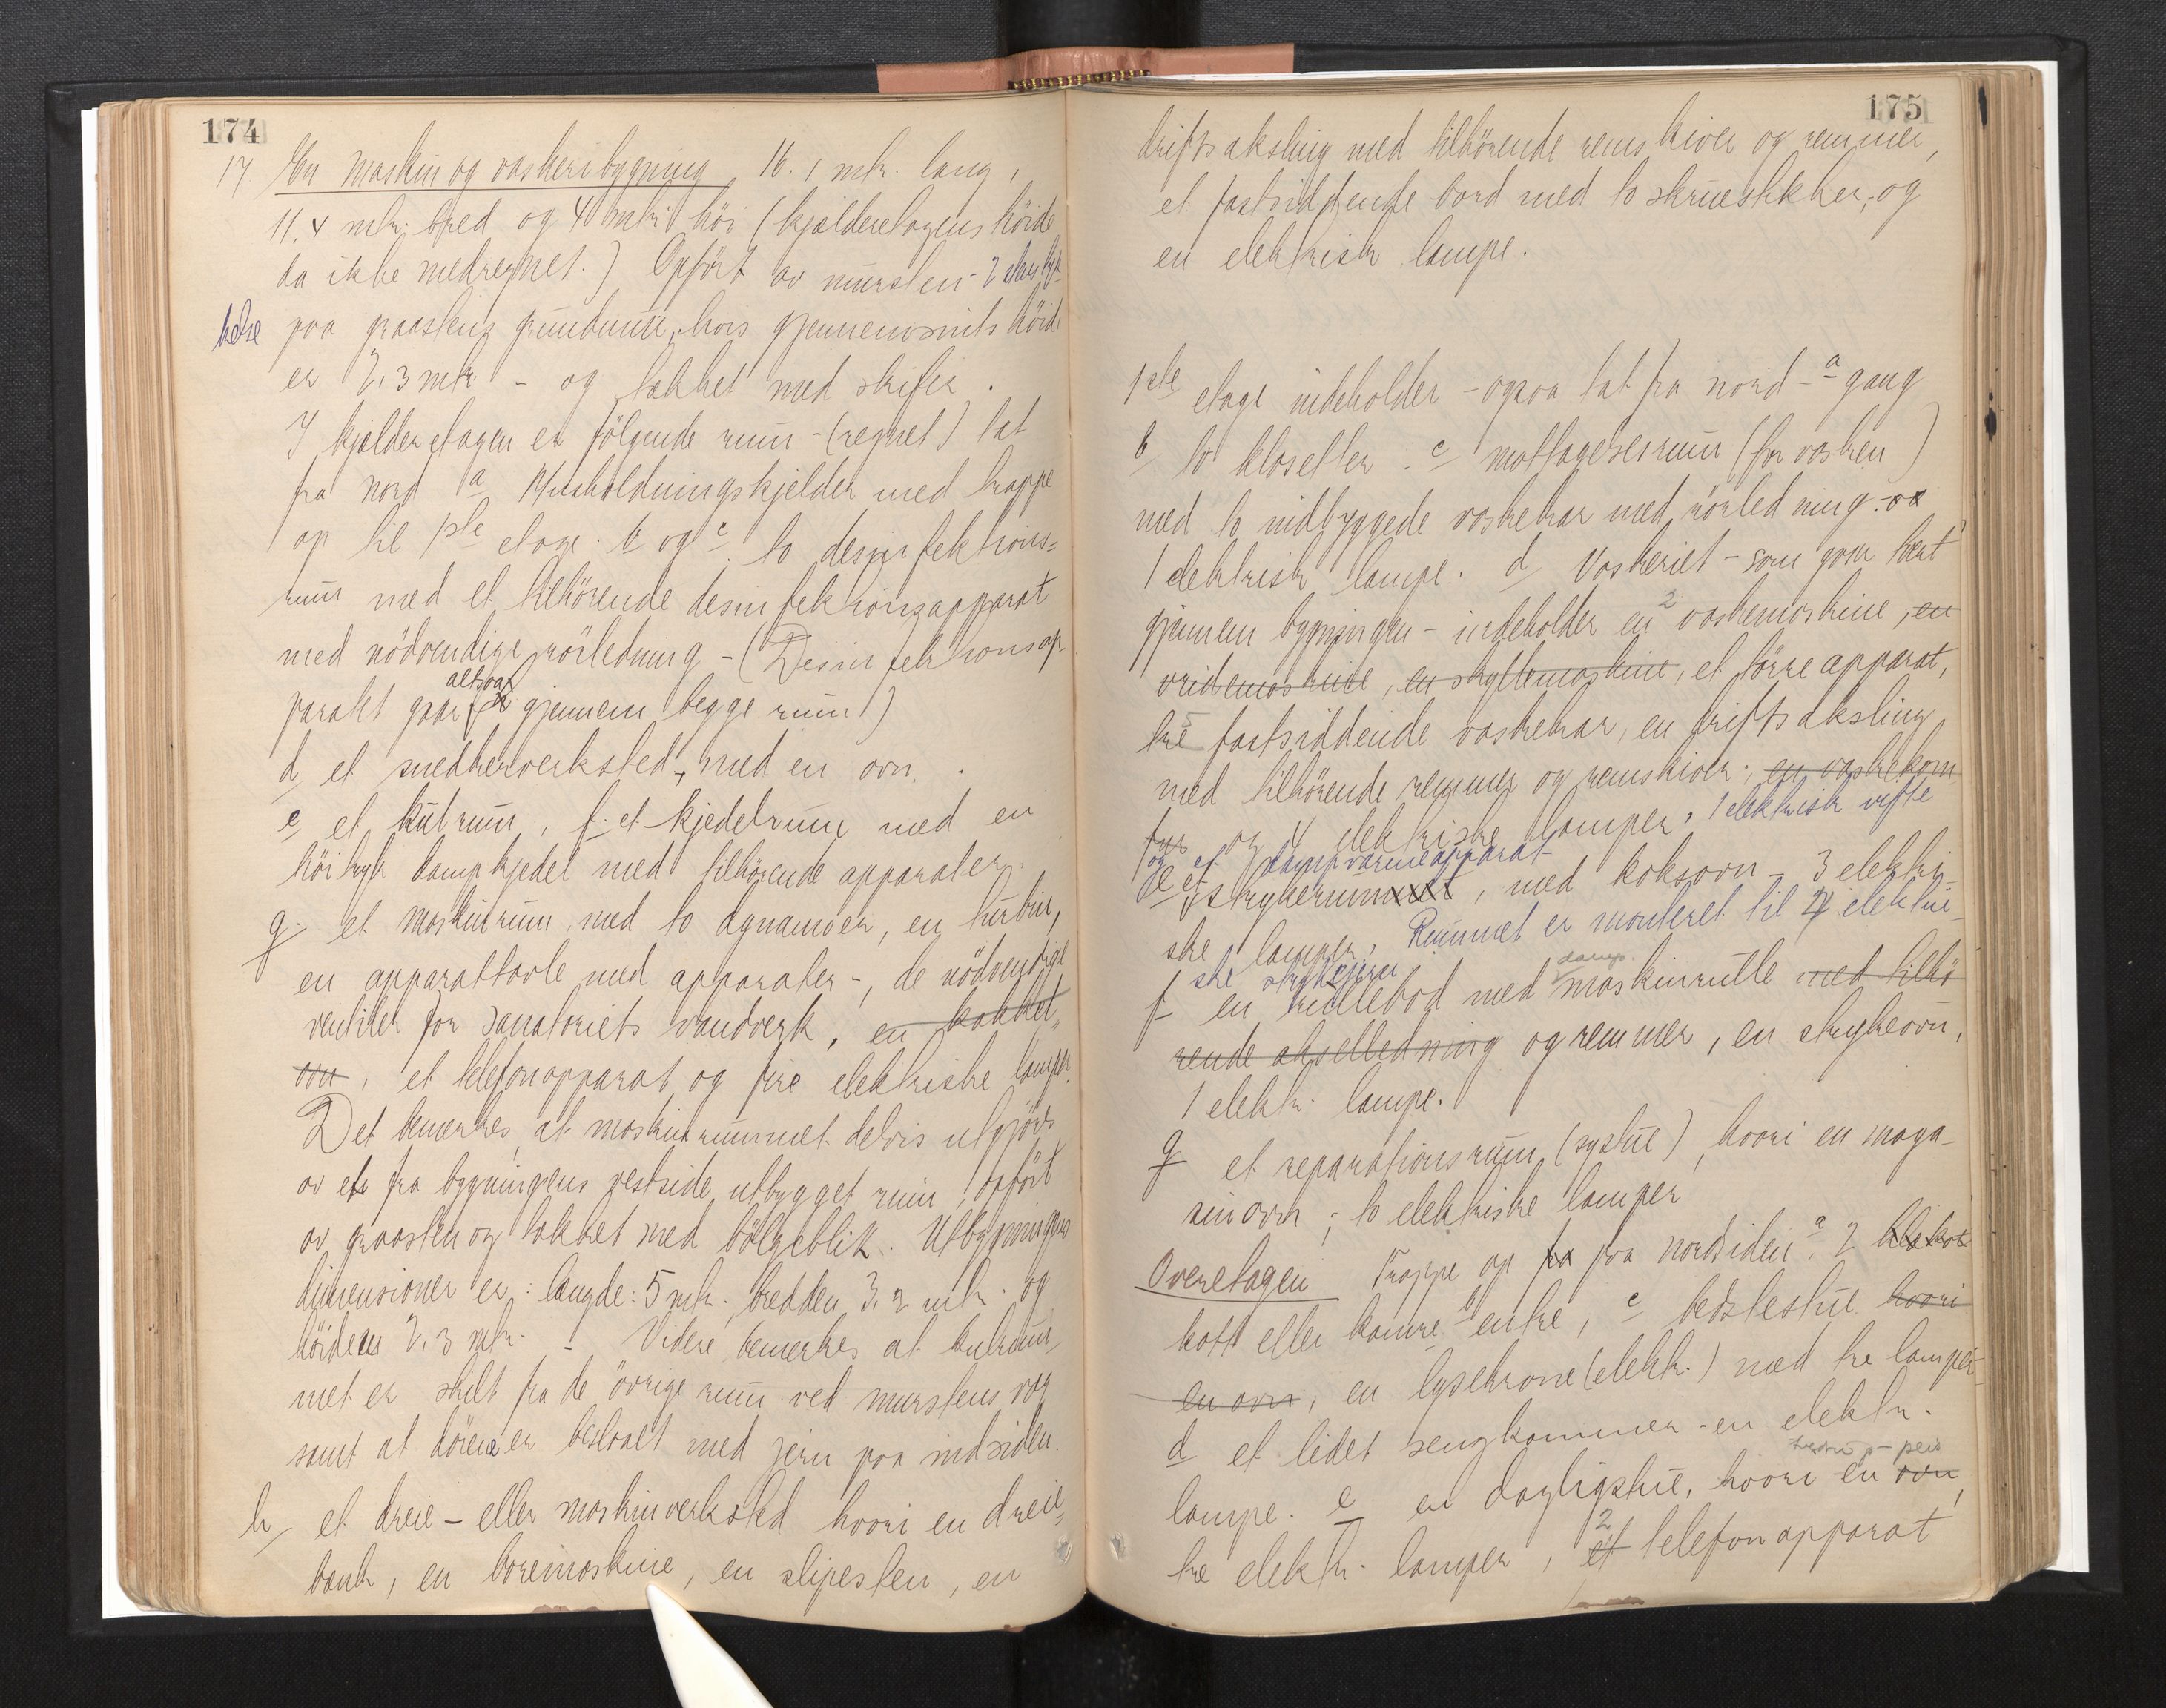 174
17. En maskin og vaskeribygning 16.1 mtr. lang,
11.4 mtr. bred og 4 mtr. höi (kjelderetagens höide
da ikke medregnet.) Opfört av mursten - 2 stens tyk-
kelse paa graastens grundmur, hvis gjennemsnits höide
er 2.3 mtr - og tækket med skifer.
I kjelderetagen er følgende rum - (regnet) tat
fra nord a Husholdningskjelder med trappe
op til 1ste etage. b og c. to desinfektions=
rum med et tilhörende desinfektionsapparat
med nödvendige rörledning - (Desinfektionsap-
altsaa
paratet gaar gjennem begge rum)
d et snedkerverksted, med en ovn.
e et kulrum, f. et kjedelrum med en
höitryk dampkjedel med tilhörende apparater.
g. et maskinrum, med to dynamoer, en turbin,
en apparattavle med apparater -, de nödvendige
ventiler for Sanatoriets vandverk, en kakkel=
ovn, et telefonapparat, og fire elektriske lamper.
Det bemerkes, at maskinrummet delvis utgjöres
av et fra bygningens vestside, utbygget rum, opfört
av graasten og tækket med bölgeblik. Utbygningens
dimensioner er: længde: 5 mtr., bredden 3.2 mtr. og
höiden 2.3 mtr. - Videre bemerkes at kulrum-
met er skilt fra de övrige rum ved murstens væg
samt at dörene er beslaaet med jern paa indsiden.
h et dreie - eller maskinverksted hvori en dreie=
bænk, en boremaskine, en slipesten, en
175
driftsaksling med tilhörende remskiver og remmer,
et fastsiddende bord med to skruestikker, og
en elektrisk lampe.
1ste etage indeholder - ogsaa tat fra nord - a gang
b to klosetter. c mottagelsesrum (for vasken)
med to indbyggede vaskekar med rörledning. og
1 elektrisk lampe. d Vaskeriet - som gaar tvert
gjennem bygningen - indeholder en 2 vaskemaskine, en
vridemaskine, en skyllemaskine, et törreapparat,
tre fastsiddende vaskekar, en driftsaksling
med tilhörende remmer og remskiver, en vaskekom
fur og 4 elektriske lamper. 1 elektrisk vifte
og et dampvarmeapparat
e et strykerum, med koksovn - 3 elektri-
ske lamper. Rummet er monteret til 4 elektri-
ske strykejern
damp
f en rullebod med maskinrulle med tilhö
rende akselledning og remmer, en strykeovn,
1 elektr. lampe.
g et reparationsrum (systue), hvori en maga-
sinovn; to elektriske lamper
Overetagen Trappe op fra paa nordsiden. a 2
kott eller kamre b entre, c bedstestue hvori
en ovn, en lysekrone (elektr.) med tre lamper
d et lidet sengkammer - en elektr.
peis
lampe. e en dagligstue, hvori en ovn,
2
tre elektr. lamper, et telefonapparat